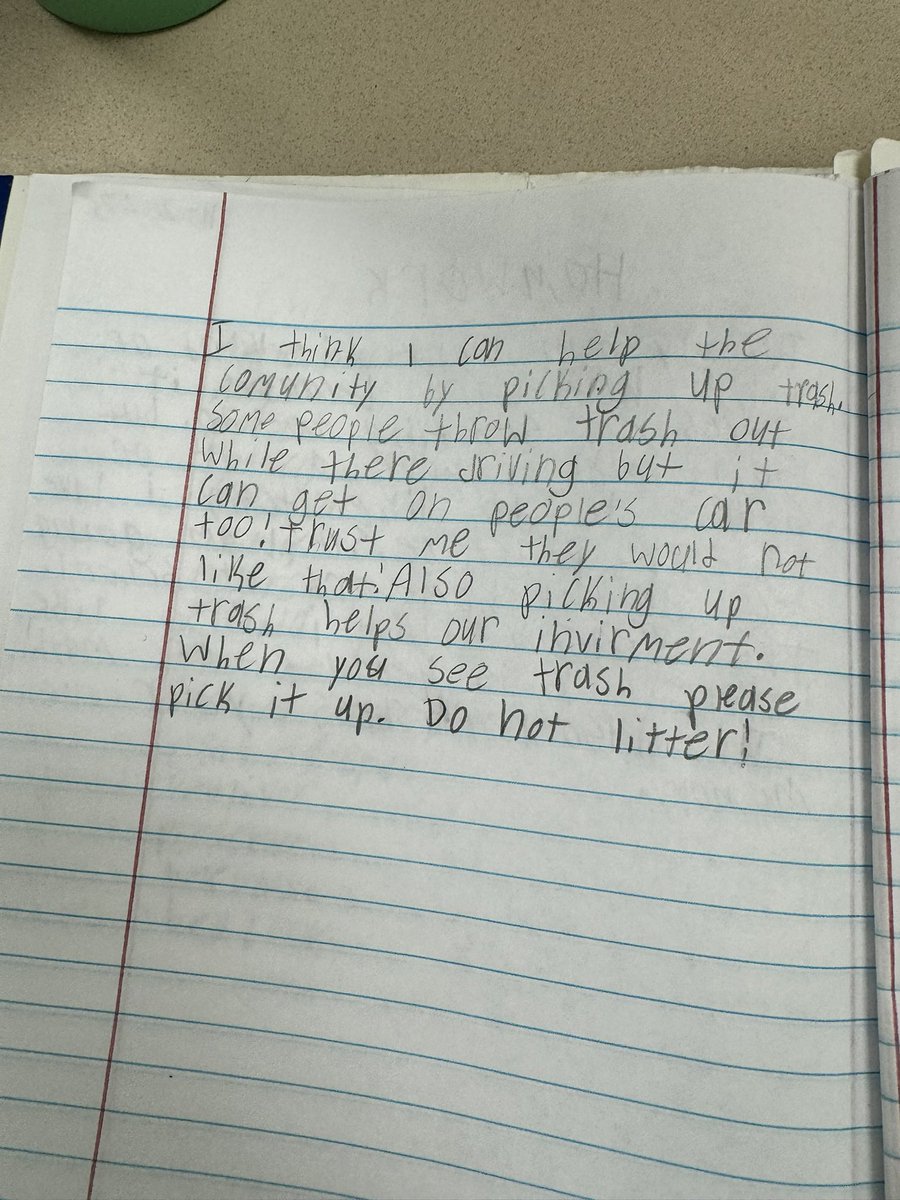 I think I can help the
comunity by picking up trash.
Some people throw trash out
While there driving but it
can get on people's car
too! trust me they would not
like that! Also picking up
trash helps our invirment.
When you see trash please
pick it up. Do not litter!